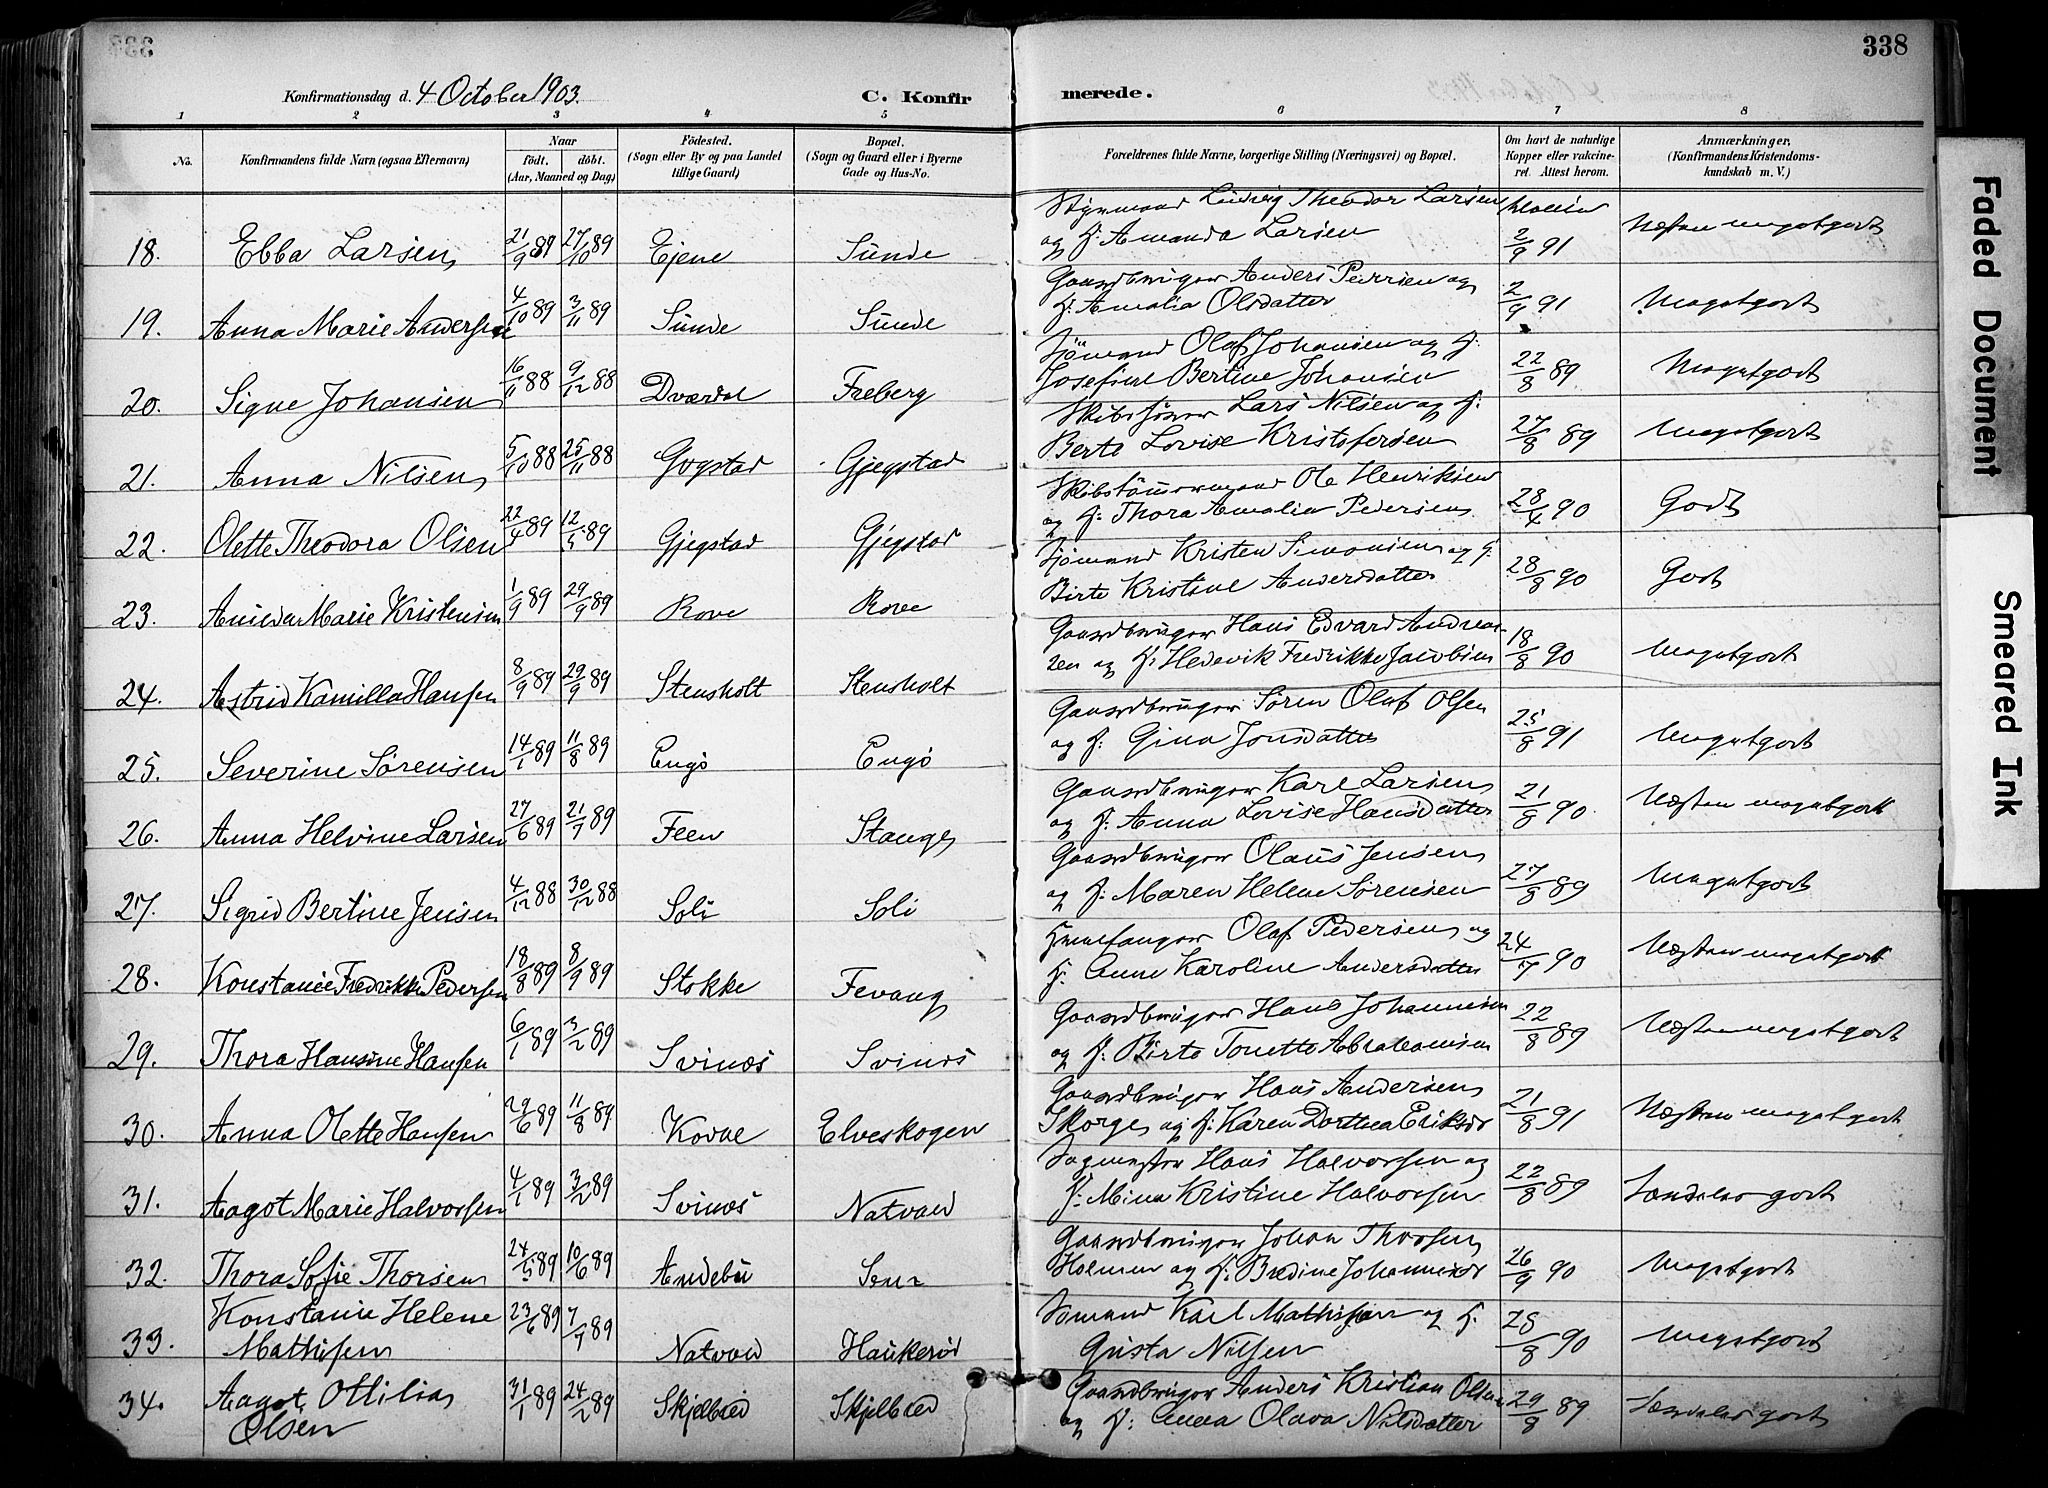 338
Konfirmationsdag d. 4 October 1903. C. Konfirmerede.
1 2 3 4 5 6 7 8
No. Konfirmandens fulde Navn (ogsaa Efternavn) Naar født. døbt. (Aar, Maaned og Dag) Fødested. (Sogn eller By og paa Landet tillige Gaard) Bopæl. (Sogn og Gaard eller i Byerne Gade og Hus-No. Forældrenes fulde Navne, borgerlige Stilling (Næringsvei) og Bopæl. Om havt de naturlige Kopper eller vakcineret. Attest herom. Anmærkninger. (Konfirmandens Kristendomskundskab m. V.)
18. Ebba Larsen 21/9 89 27/10 89 Ejene Sunde Styrmand Ludvig Theodor Larsen og H: Amanda Larsen 2/9 91 Næsten megetgodt
19. Anna Marie Andersen 4/10 89 3/11 89 Sunde Sunde Gaardbruger Anders Pedersen og H: Amalia Olsdatter 2/9 91 Megetgodt
20. Signe Johansen 16/11 88 9/12 88 Dverdal Freberg Sjømand Olaf Johansen og H: Josefine Bertine Johansen 22/8 89 Megetgodt
21. Anna Nilsen 5/10 88 25/11 88 Gogstad Gjegstad Lars Nilsen og H: Berte Lovise Kristofersen 27/8 89 Megetgodt
22. Olette Theodora Olsen 22/4 89 12/5 89 Gjegstad Gjegstad Skibstømmermand Ole Henriksen og H: Thora Amalia Pedersen 28/4 90 Godt
23. Marie Kristensen 1/9 89 29/9 89 Rove Rove Sjømand Kristen Simonsen og H: Birte Kristine Andersdatter 28/8 90 Godt
24. Astrid Kamilla Hansen 8/9 89 29/9 89 Stensholt Stensholt Gaardbruger Hans Edvard Andreasen og H: Hedevik Fredrikke Jacobsen 18/8 90 Megetgodt
25. Severine Sørensen 14/1 89 11/8 89 Engø Engø Gaardbruger Søren Olaf Olsen og H: Gina Jonsdatter 25/8 91 Megetgodt
26. Anna Helvine Larsen 27/6 89 21/7 89 Feen Stange Gaardbruger Karl Larsen og H: Anna Lovise Hansdatter 21/8 90 Næsten megetgodt
27. Sigrid Bertine Jensen 4/12 88 30/12 88 Soli Soli Gaardbruger Olaus Jensen og H: Maren Helene Sørensen 27/8 89 Megetgodt
28. Konstance Fredrikke Pedersen 18/8 89 8/9 89 Stokke Fevang Hvalfanger Olaf Pedersen og H: Anne Karoline Andersdatter 24/7 90 Næsten megetgodt
29. Thora Hansine Hansen 6/1 89 3/2 89 Svinøs Svinøs Gaardbruger Hans Johannesen og H: Birte Tonette Abrahamsen 22/8 89 Næsten megetgodt
30. Anna Olette Hansen 29/6 89 11/8 89 Kovae Elveskogen Gaardbruger Hans Andersen Skorge og H: Karen Dorthea Eriksdr 21/8 91 Næsten megetgodt
31. Aagot Marie Halvorsen 4/1 89 3/2 89 Svinøs Natvad Sagmester Hans Halvorsen og H: Mina Kristine Halvorsen 22/8 89 Særdeles godt
32. Thora Sofie Thorsen 24/5 89 10/6 89 Andebu Gaardbruger Johan Thorsen Holmen og H: Bredine Johannesdr 26/9 90 Megetgodt
33. Konstance Helene Mathisen 23/6 89 7/7 89 Natvad Haukerød Sømand Karl Mathisen og H. Gusta Nilsen 28/8 90 Megetgodt
34. Aagot Ottilia Olsen 31/1 89 24/2 89 Skjelbred Skjelbred Gaardbruger Anders Kristian Olsen og H: Anna Olava Nilsdatter 29/8 89 Særdeles godt
Faded Document
Smeared Ink